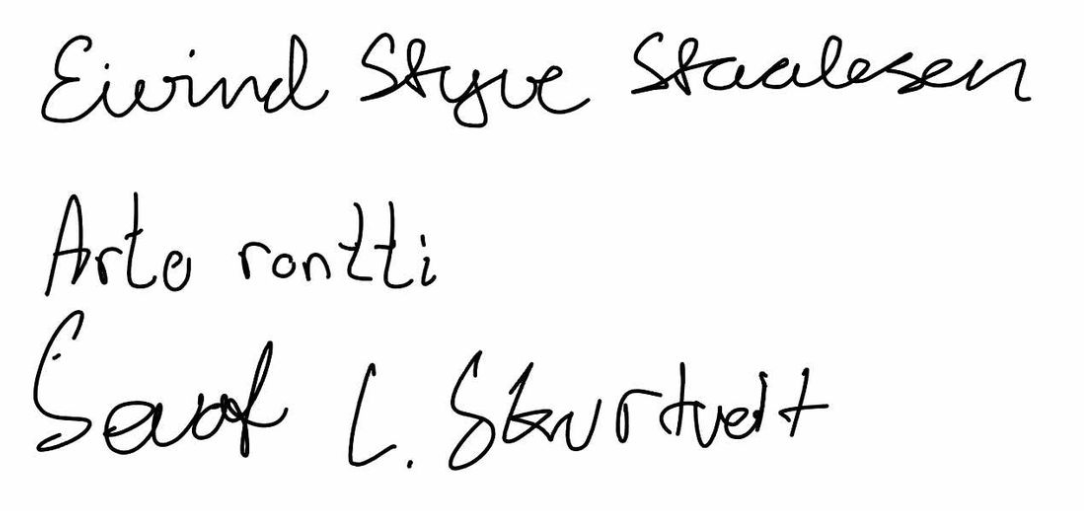 Eivind Styve Staalesen
Arto rontti
L. Skurtveit